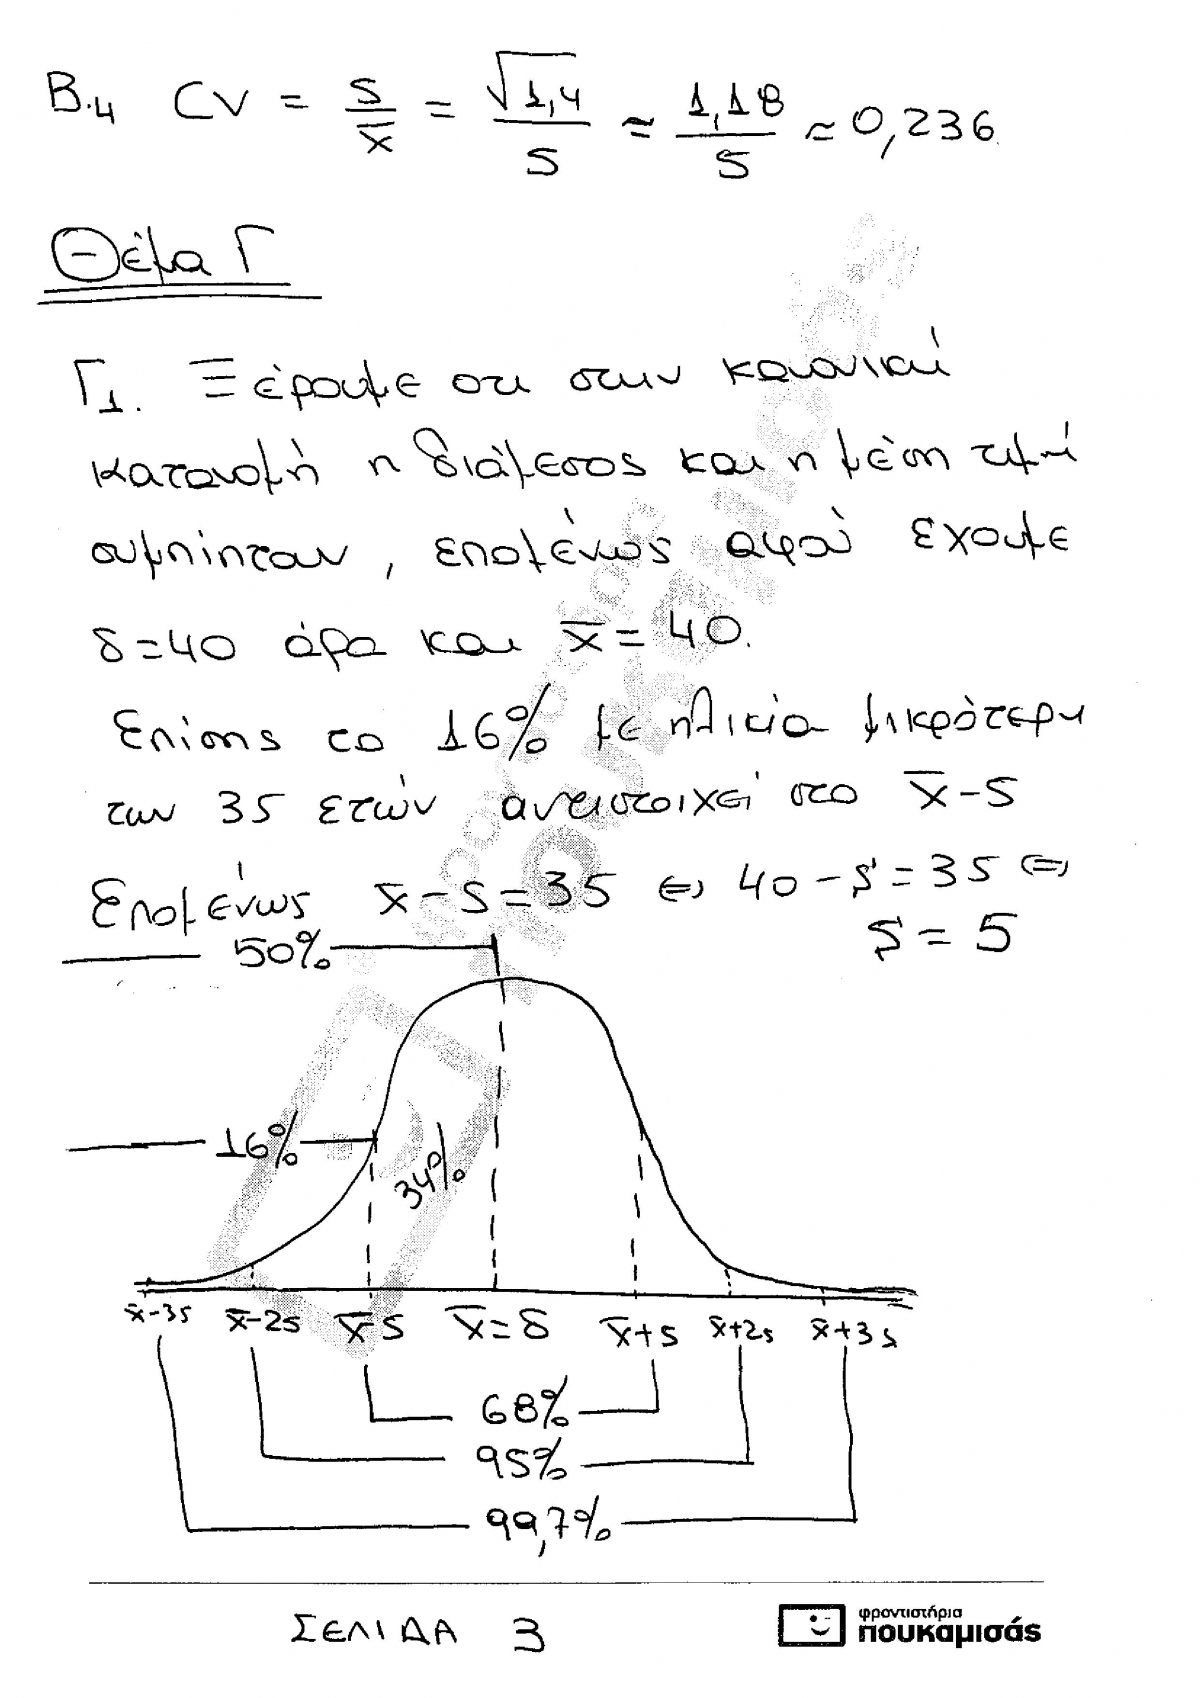 Β.4 CV = s/x̄ = √1,4/5 ≈ 1,18/5 ≈ 0,236
Θέμα Γ
Γ1. Ξέρουμε οτι στην κανονική
κατανομή η διάμεσος και η μέση τιμή
συμπίπτουν, επομένως αφού έχουμε
δ=40 άρα και x̄=40.
Επίσης το 16% με ηλικία μικρότερη
των 35 ετών αντιστοιχεί στο x̄-s
Επομένως x̄-s=35 ⇔ 40-s=35 ⇔
s=5
50%
16%
34%
x̄-3s x̄-2s x̄-s x̄=δ x̄+s x̄+2s x̄+3s
68%
95%
99,7%
ΣΕΛΙΔΑ 3
φροντιστήρια
πουκαμισάς